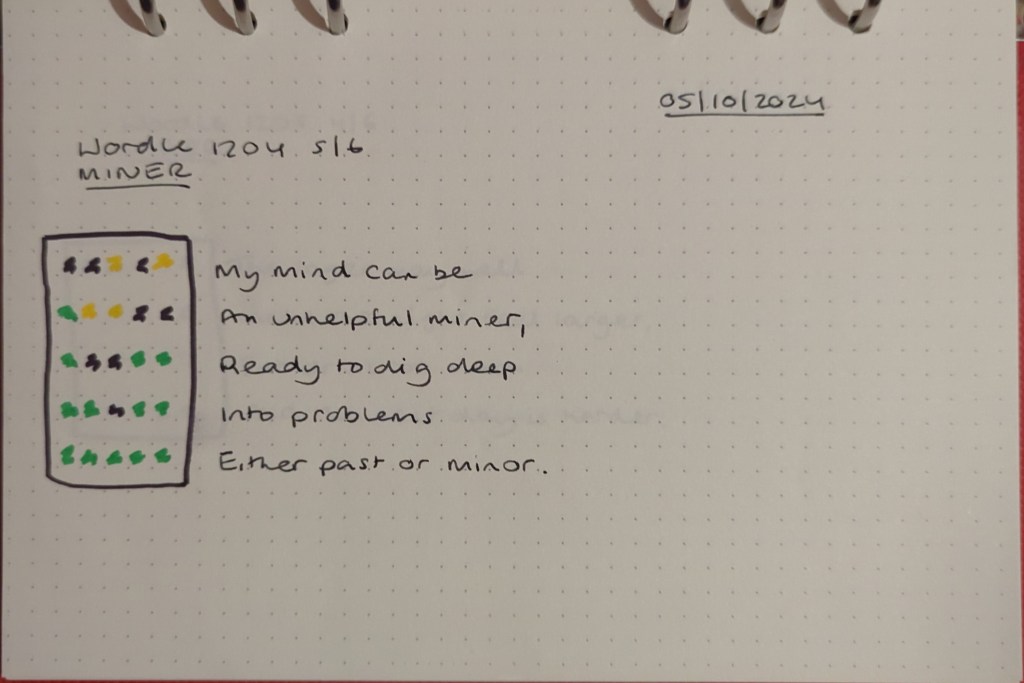 05/10/2024
Wordle 1204 5/6
MINER
My mind can be
An unhelpful miner,
Ready to dig deep
Into problems
Either past or minor.